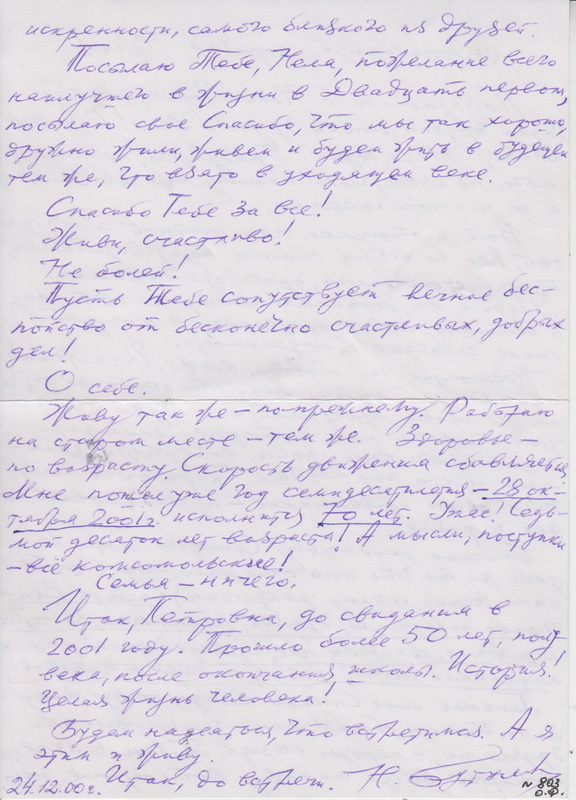 искренности, самого близкого из друзей.
Посылаю Тебе, Нела, пожелание всего
наилучшего в жизни в Двадцать первом,
посылаю свое Спасибо, что мы так хорошо,
дружно жили, живем и будем жить в будущем
тем же, что взято в уходящем веке.
Спасибо Тебе за все!
Живи, счастливо!
Не болей!
Пусть Тебе сопутствует вечное бес-
покойство от бесконечно счастливых, добрых
дел!
О себе.
Живу так же – по-прежнему. Работаю
на старом месте – тем же. Здоровье –
по возрасту. Скорость движения сбавляется.
Мне пошел уже год семидесятилетия – 28 ок-
тября 2001 г. исполнится 70 лет. Ужас! Седь-
мой десяток лет возраста! А мысли, поступки
– всё комсомольские!
Семья – ничего.
Итак, Петровна, до свидания в
2001 году. Прошло более 50 лет, полу-
века, после окончания школы. История!
Целая жизнь человека!
Будем надеяться, что встретимся. А я
этим и живу.
Итак, до встречи. Н.
24.12.00 г.
N 803
О.Ф.